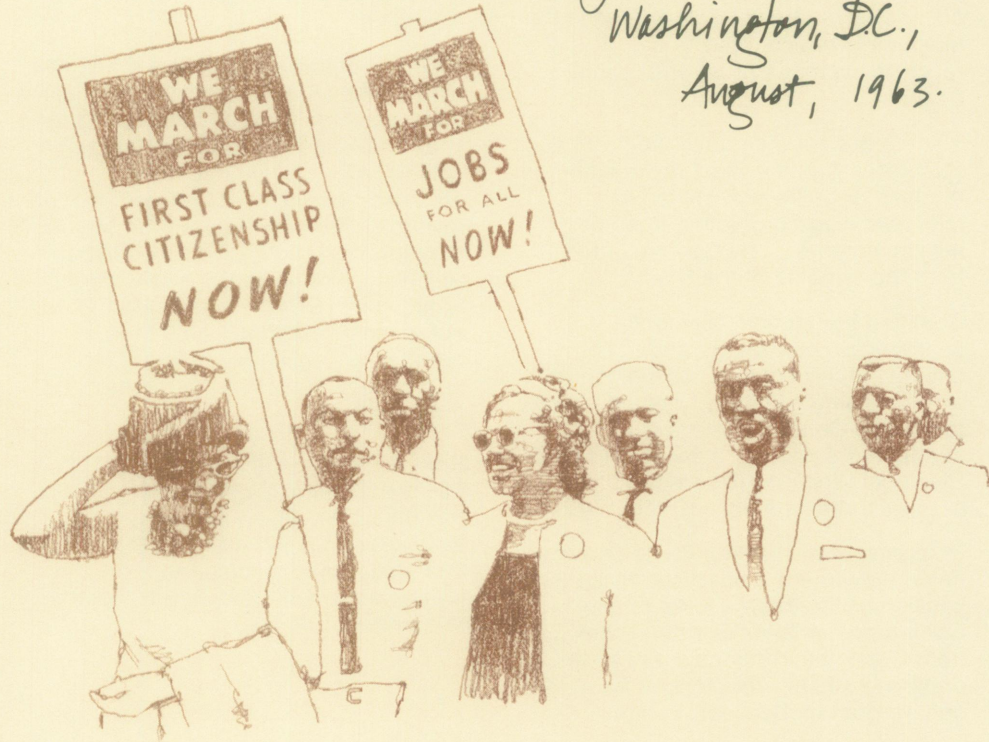 Washington, D.C.,
August, 1963.
WE
MARCH
FOR
FIRST CLASS
CITIZENSHIP
NOW!
WE
MARCH
FOR
JOBS
FOR ALL
NOW!